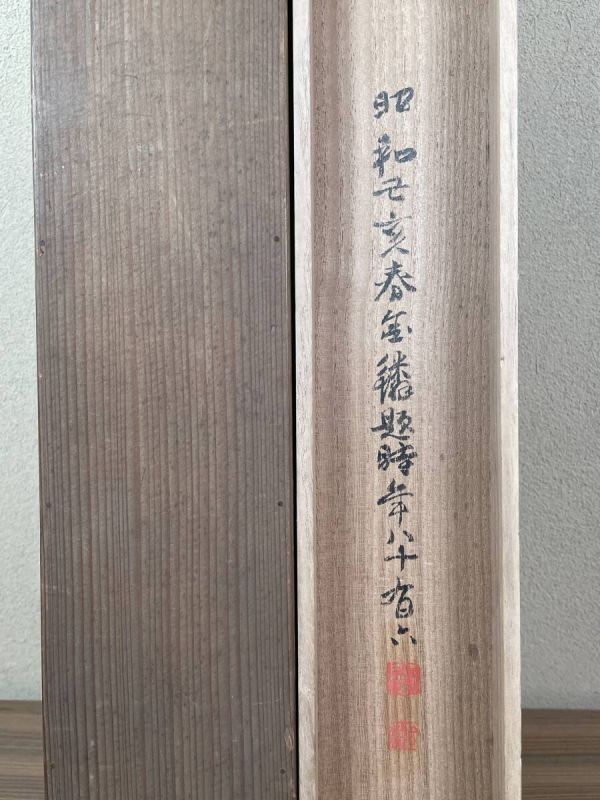 昭和乙亥春金題時年八十有六